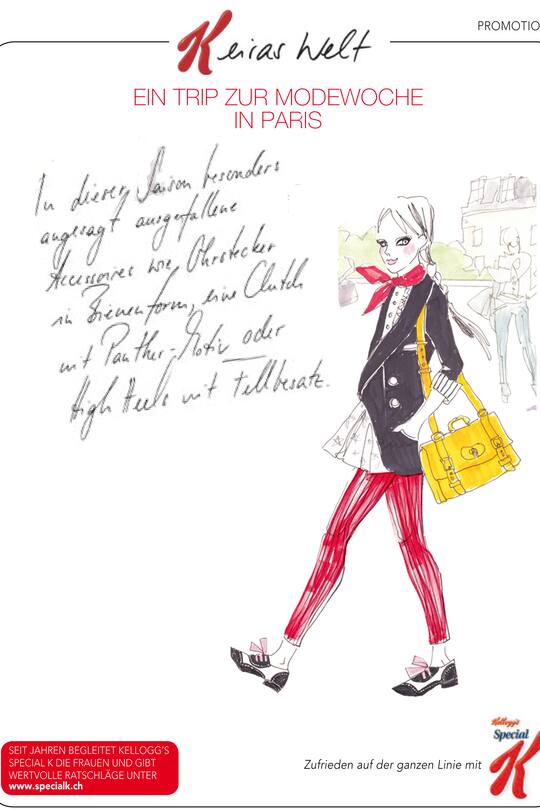 PROMOTIO
Keiras Welt
EIN TRIP ZUR MODEWOCHE
IN PARIS
In dieser Saison besonders
angesagt ausgefallene
Accessoires wie Ohrstecker
in Bienenform, eine Clutch
mit Panther-Motiv oder
High Heels mit Fellbesatz.
SEIT JAHREN BEGLEITET KELLOGG'S
SPECIAL K DIE FRAUEN UND GIBT
WERTVOLLE RATSCHLÄGE UNTER
www.specialk.ch
Zufrieden auf der ganzen Linie mit
Kellogg's
Special
K